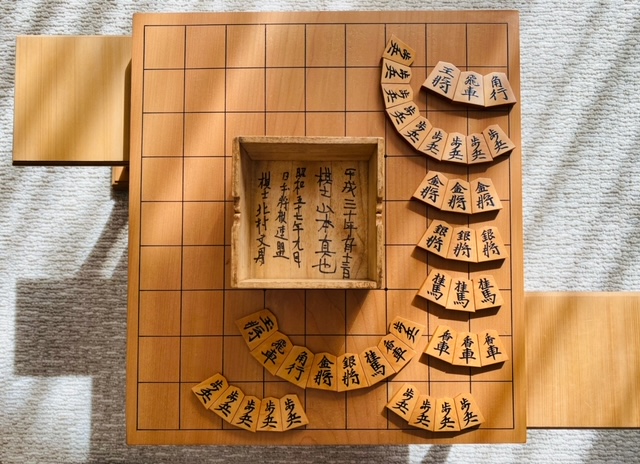 王將 飛車 角行
歩兵 歩兵 歩兵 歩兵 歩兵 歩兵 歩兵 歩兵 歩兵
金將 金將 金將
銀將 銀將 銀將
桂馬 桂馬 桂馬
香車 香車 香車
平成三十年
棋士 山本真也
昭和五十七年九月
日本将棋連盟
棋士 北村文男
王將 飛車 角行 金將 銀將 桂馬 香車 歩兵
歩兵 歩兵 歩兵 歩兵 歩兵
歩兵 歩兵 歩兵 歩兵